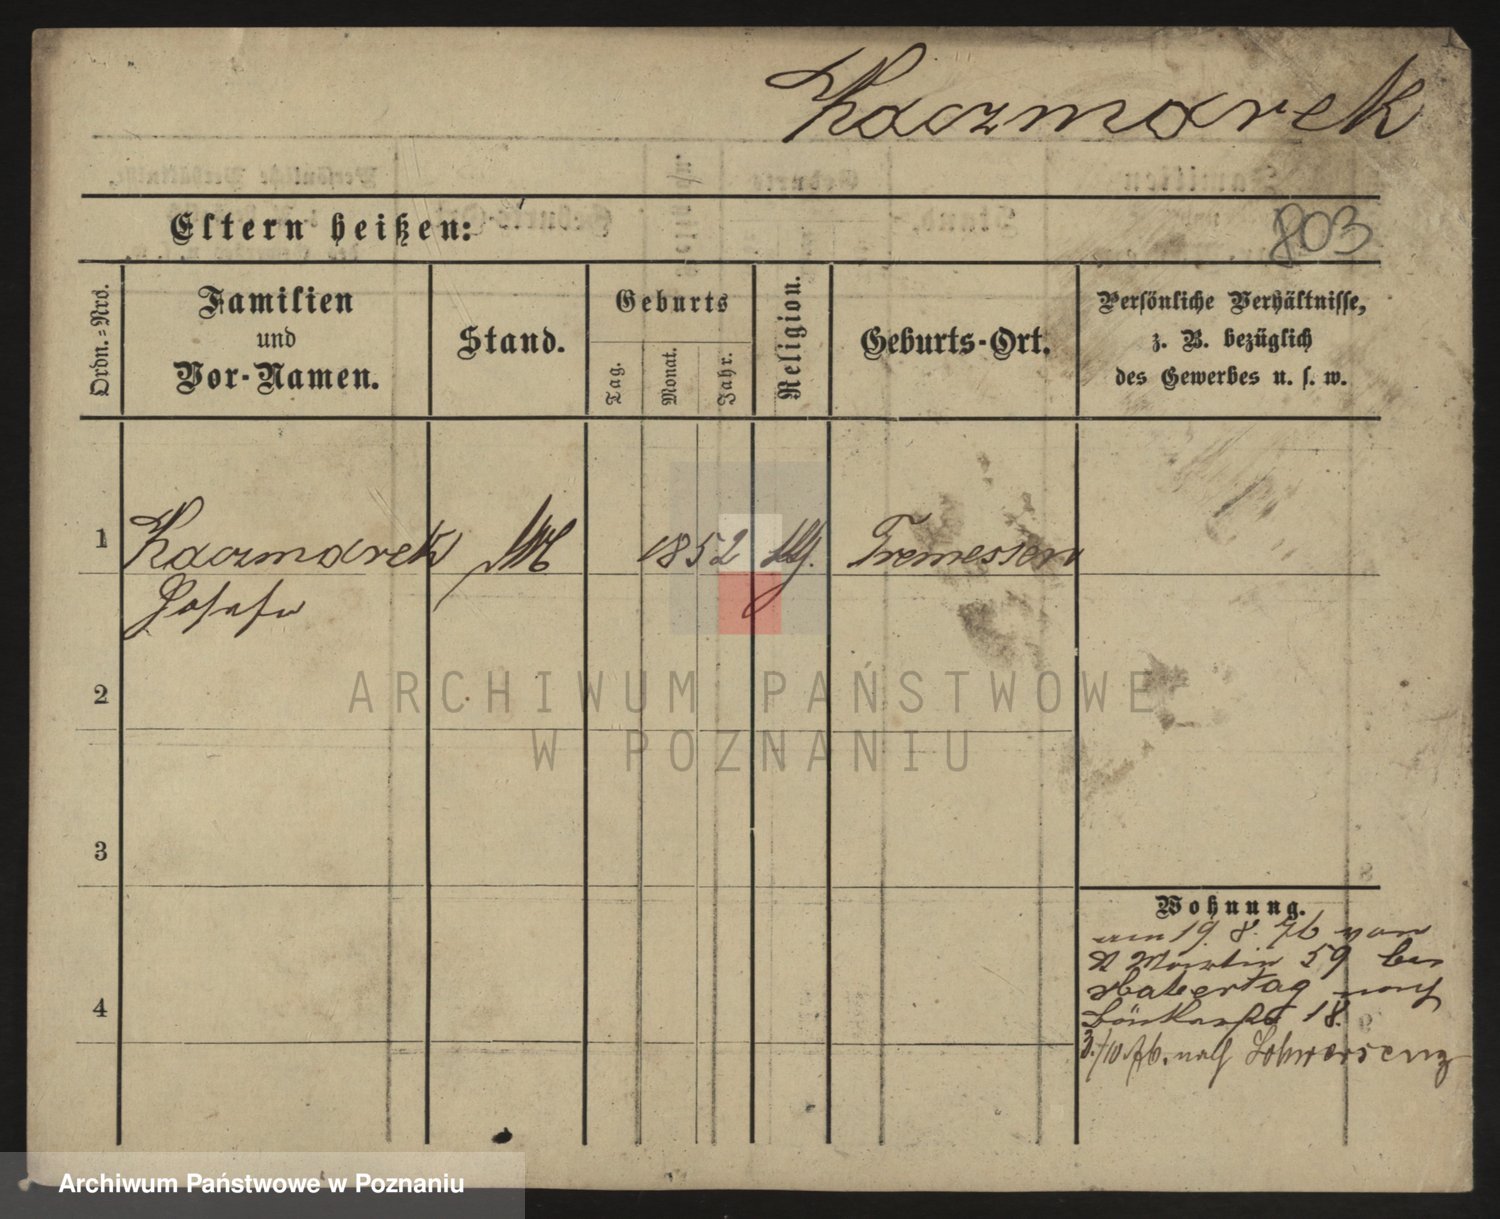 Kaczmarek
Eltern heißen:
803
Ordn.=Nro.
Familien
und
Vor-Namen.
Stand.
Geburts
Tag.
Monat.
Jahr.
Religion.
Geburts-Ort.
Persönliche Verhältnisse,
z. B. bezüglich
des Gewerbes u. s. w.
1
Kaczmarek
Josefa
1852
Tremessen
2
ARCHIWUM PAŃSTWOWE
W POZNANIU
3
Wohnung.
am 19. 8. 76 von
St Martin 59 bei
nach
4
18.
3./10.76. nach Schwersenz
Archiwum Państwowe w Poznaniu